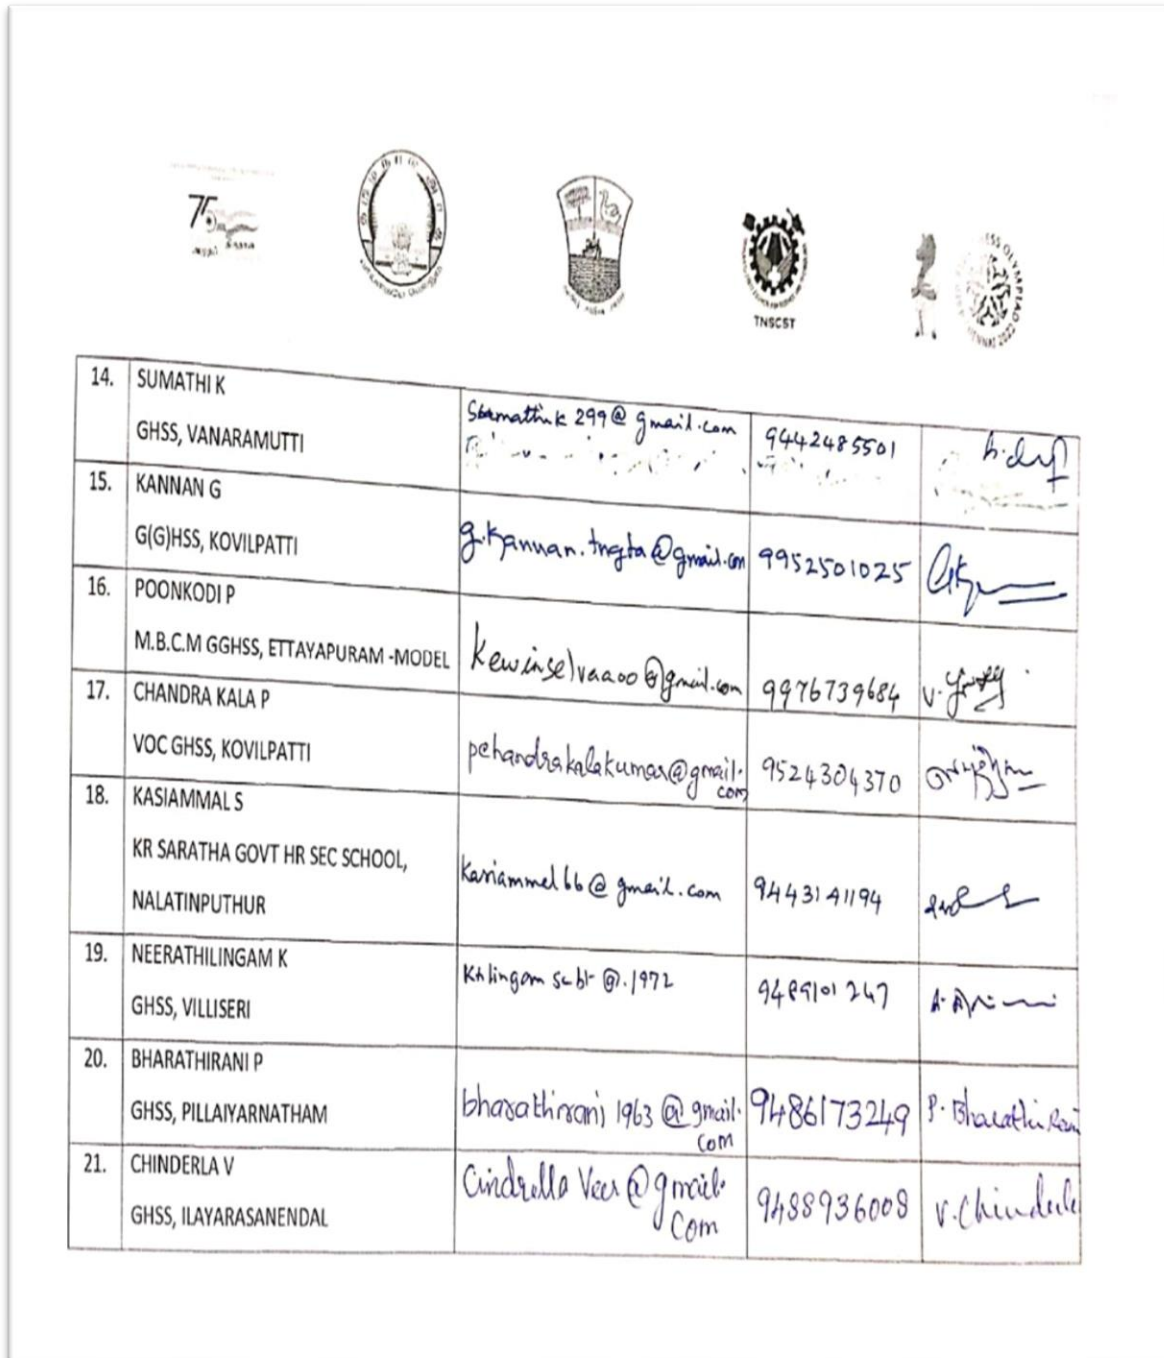 75
TNSCST
14. SUMATHI K
GHSS, VANARAMUTTI
9442485501
15. KANNAN G
G(G)HSS, KOVILPATTI
g.kannan.tngta@gmail.com
9952501025
16. POONKODI P
M.B.C.M GGHSS, ETTAYAPURAM -MODEL
Kewinselvaaoo@gmail.com
9976739684
17. CHANDRA KALA P
VOC GHSS, KOVILPATTI
pchandrakalakumar@gmail.
com
9524304370
18. KASIAMMAL S
KR SARATHA GOVT HR SEC SCHOOL,
NALATINPUTHUR
Kasiammel66@gmail.com
9443141194
19. NEERATHILINGAM K
GHSS, VILLISERI
@.1972
9489101247
20. BHARATHIRANI P
GHSS, PILLAIYARNATHAM
bharathirani1963@gmail.
com
9486173249
P. Bharathi Rani
21. CHINDERLA V
GHSS, ILAYARASANENDAL
Cindrella Veer@gmail.
Com
9488936008
V. Chinderla